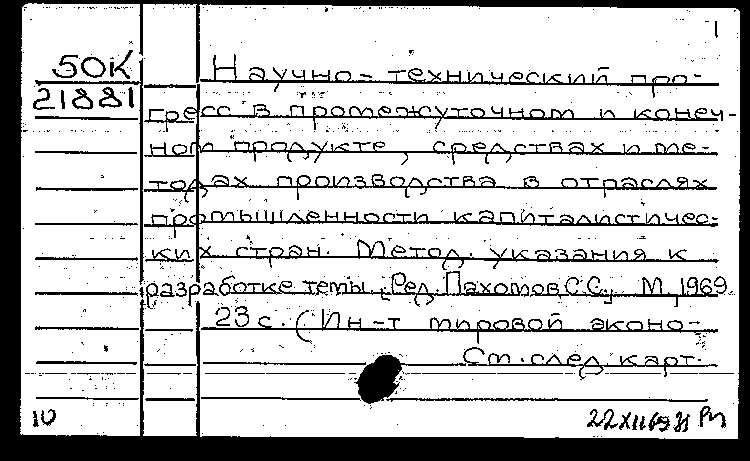 1
50К Научно-технический про-
21881 гресс в промежуточном и конеч-
ном продукте, средствах и ме-
тодах производства в отраслях
промышленности капиталистичес-
ких стран. Метод. указания к
разработке темы. [Ред. Пахомов С.С.] М., 1969
23 с. (Ин-т мировой эконо-
См. след. карт.
10